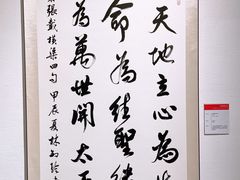 天地立心為生
命為往聖繼
為萬世開太平
張載橫渠四句 甲辰夏林